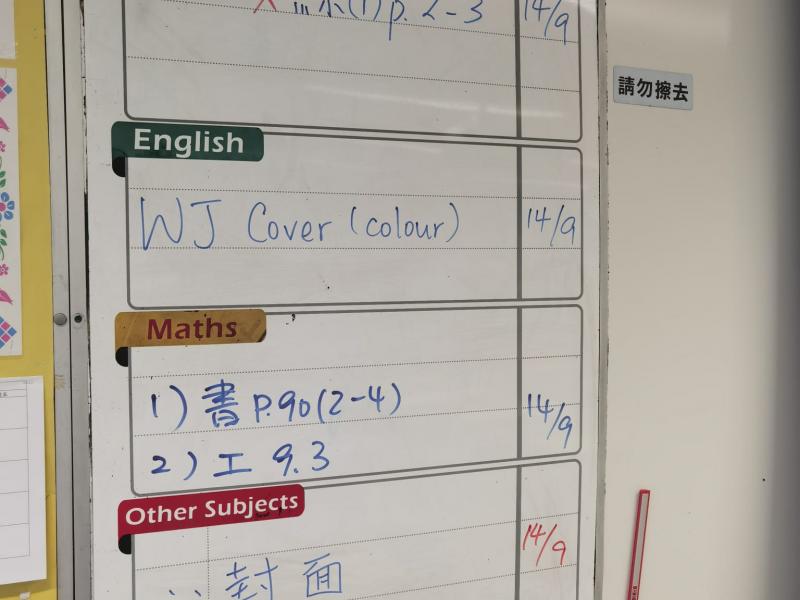 (1) p. 2-3 14/9
請勿擦去
English
WJ Cover (colour) 14/9
Maths
1) 書 P.90 (2-4) 14/9
2) 工 9.3
Other Subjects
14/9
封面